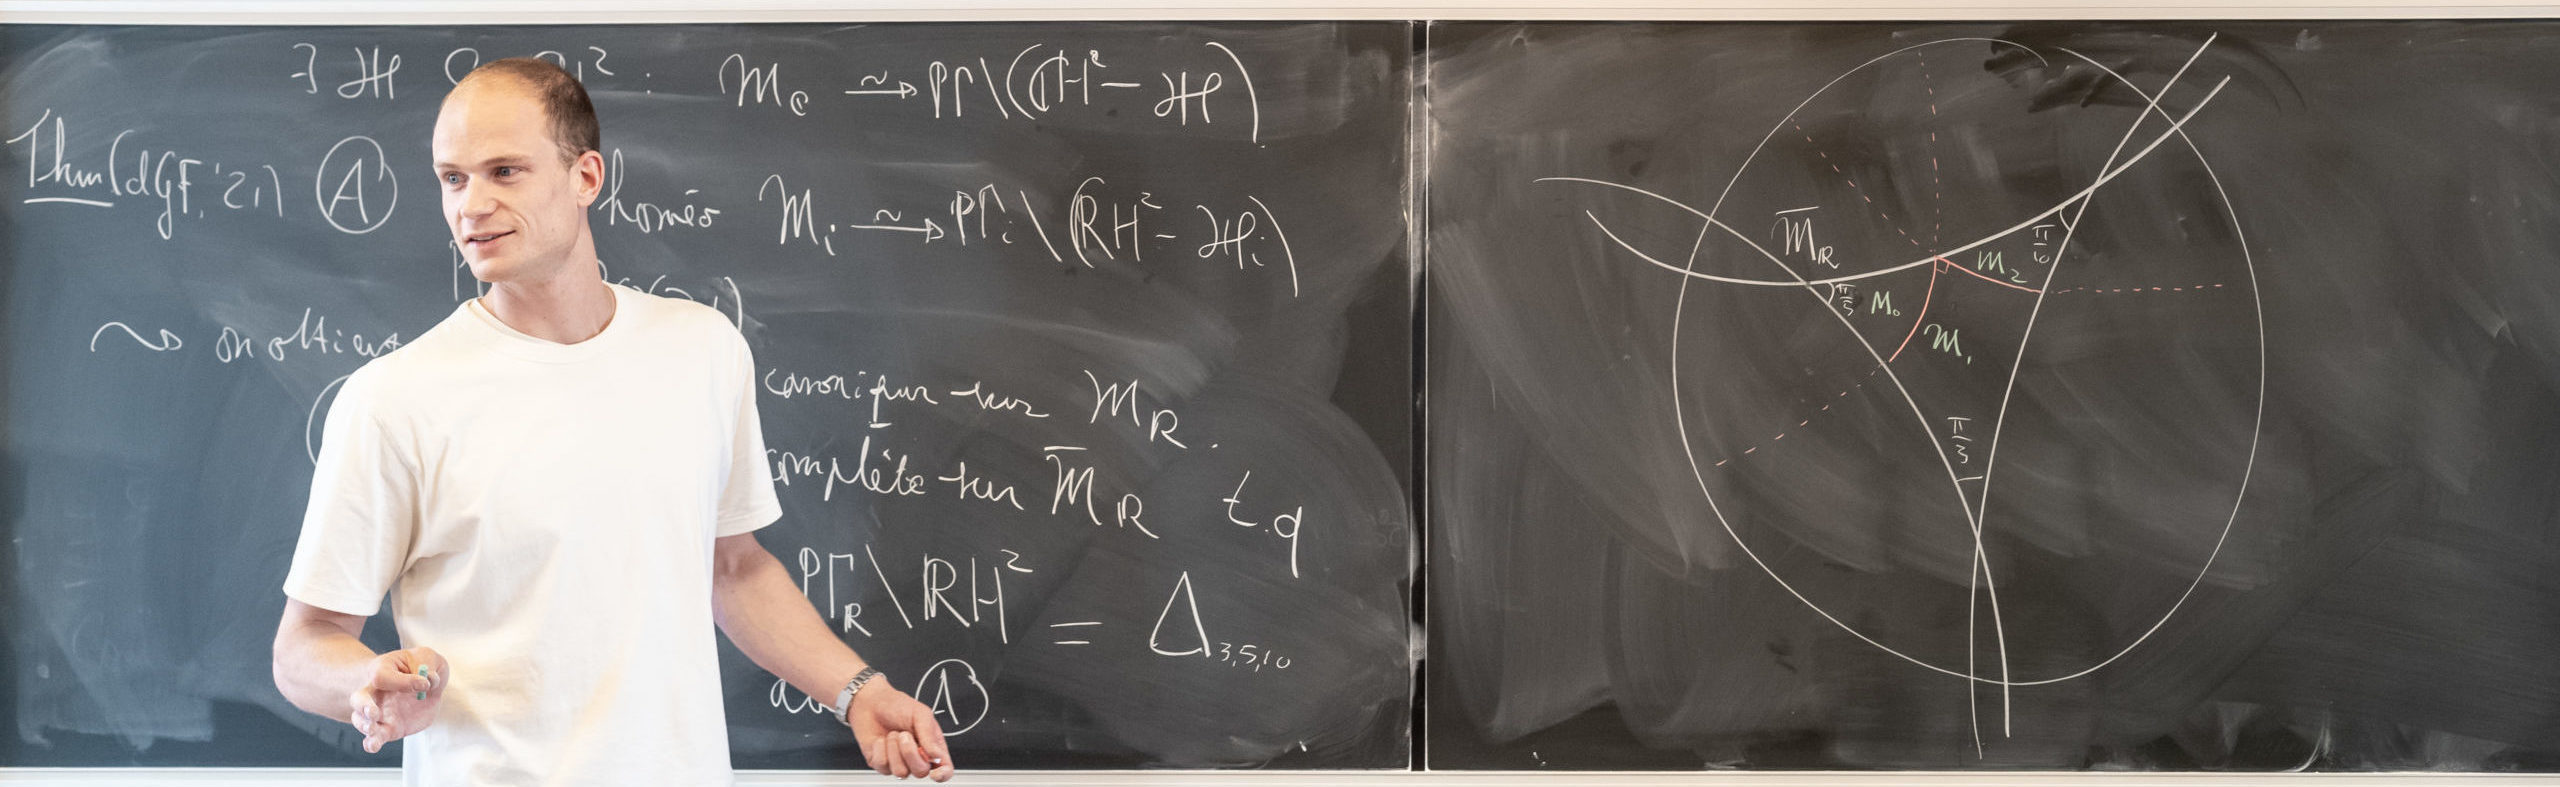 ∃ ℋ ²: M_C ⥲ PΓ\(ℂH² − ℋ)
Thm (dGF, '21) Ⓐ homéo M_i ⥲ PΓ_i \ (ℝH² − ℋ_i)
⇝ on obtient
canonique sur M_ℝ.
complète sur M̄_ℝ t.q
PΓ_ℝ \ ℝH² = Δ_{3,5,10}
Ⓐ.
M̄_ℝ
π/10
M_2
π/5
M_0
M_1
π/3